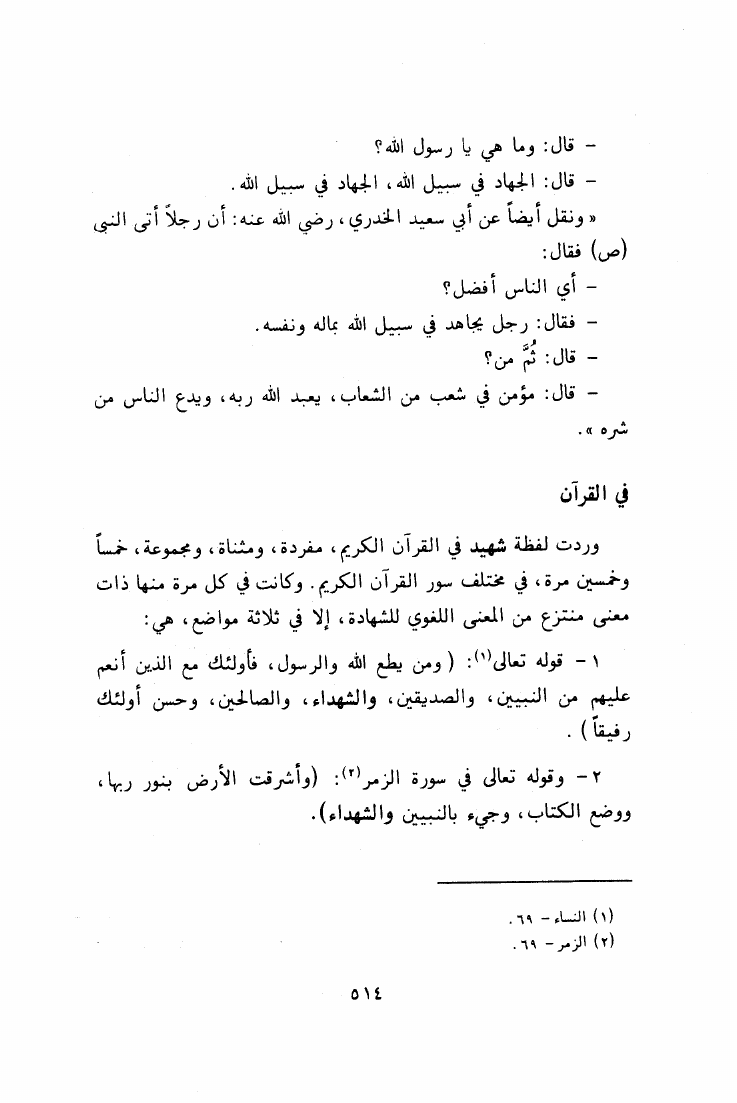 – قال: وما هي يا رسول الله؟
– قال: الجهاد في سبيل الله، الجهاد في سبيل الله.
« ونقل أيضاً عن أبي سعيد الخدري، رضي الله عنه: أن رجلاً أتى النبي
(ص) فقال:
– أي الناس أفضل؟
– فقال: رجل يجاهد في سبيل الله بماله ونفسه.
– قال: ثُمَّ من؟
– قال: مؤمن في شعب من الشعاب، يعبد الله ربه، ويدع الناس من
شره ».
في القرآن
وردت لفظة شهيد في القرآن الكريم، مفردة، ومثناة، ومجموعة، خمساً
وخمسين مرة، في مختلف سور القرآن الكريم. وكانت في كل مرة منها ذات
معنى منتزع من المعنى اللغوي للشهادة، إلا في ثلاثة مواضع، هي:
١ – قوله تعالى(١): ( ومن يطع الله والرسول، فأولئك مع الذين أنعم
عليهم من النبيين، والصديقين، والشهداء، والصالحين، وحسن أولئك
رفيقاً ) .
٢ – وقوله تعالى في سورة الزمر(٢): (وأشرقت الأرض بنور ربها،
ووضع الكتاب، وجيء بالنبيين والشهداء).
(١) النساء – ٦٩.
(٢) الزمر – ٦٩.
٥١٤